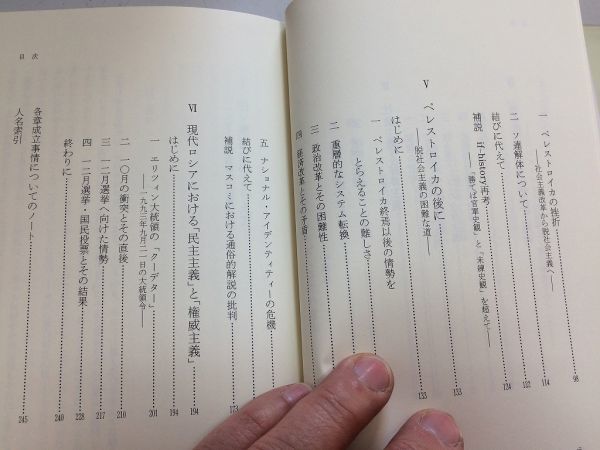 一 ペレストロイカの挫折
――社会主義改革から脱社会主義へ―― 98
二 ソ連解体について 114
結びに代えて 122
補説 if-history再考 124
――「勝てば官軍史観」と「未練史観」を超えて――
Ⅴ ペレストロイカの後に 133
――脱社会主義の困難な道――
はじめに 133
一 ペレストロイカ終焉以後の情勢を
とらえることの難しさ
二 重層的なシステム転換
三 政治改革とその困難性
四 経済改革とその矛盾
五 ナショナル・アイデンティティーの危機
結びに代えて
補説 マスコミにおける通俗的解説の批判 173
Ⅵ 現代ロシアにおける「民主主義」と「権威主義」 194
はじめに 194
一 エリツィン大統領の「クーデター」 201
――一九九三年九月二一日の大統領令――
二 一〇月の衝突とその直後 210
三 一二月選挙へ向けた情勢 217
四 一二月選挙・国民投票とその結果 228
終わりに 240
各章成立事情についてのノート 245
人名索引
目次